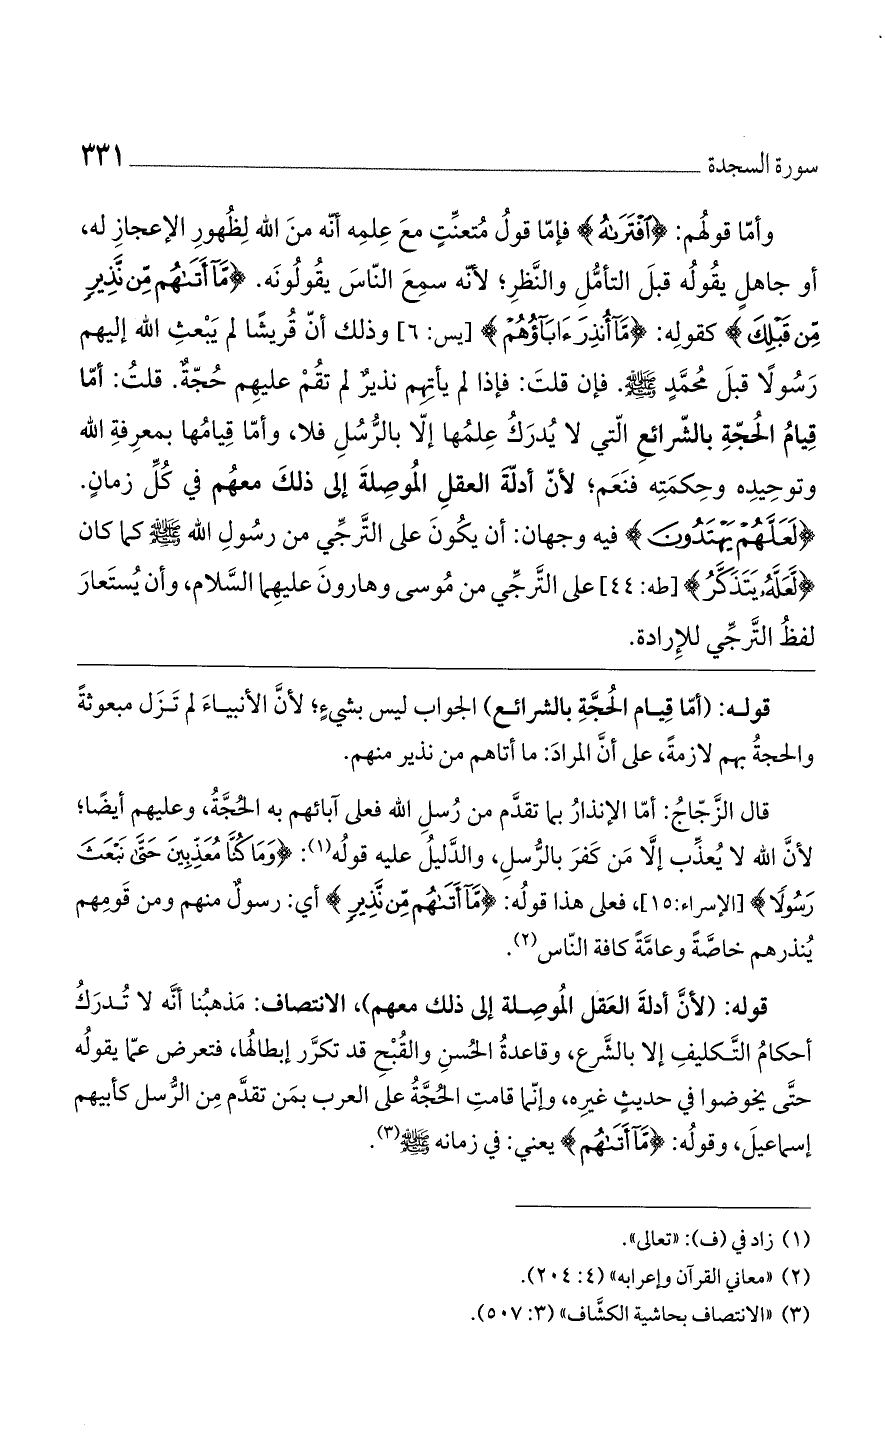 سورة السجدة ٣٣١
وأمّا قولُهم: ﴿ٱفْتَرَىٰهُ﴾ فإمّا قولُ مُتعنِّتٍ معَ عِلمِه أنّه منَ الله لِظُهورِ الإعجازِ له،
أو جاهلٍ يقُولُه قبلَ التأمُّلِ والنَّظرِ؛ لأنّه سمِعَ النّاسَ يقُولُونَه. ﴿مَّآ أَتَىٰهُم مِّن نَّذِيرٍ
مِّن قَبْلِكَ﴾ كقولِه: ﴿مَّآ أُنذِرَ ءَابَآؤُهُمْ﴾ [يس: ٦] وذلك أنّ قُريشًا لم يَبْعثِ الله إليهم
رَسُولًا قبلَ مُحمَّدٍ ﷺ. فإن قلتَ: فإذا لم يأتِهم نذيرٌ لم تقُمْ عليهِم حُجّةٌ. قلتُ: أمّا
قِيامُ الحُجّةِ بالشّرائعِ الّتي لا يُدرَكُ عِلمُها إلّا بالرُّسُلِ فلا، وأمّا قِيامُها بمعرِفةِ الله
وتوحِيدِه وحِكمَتِه فنَعَم؛ لأنّ أدلّةَ العقلِ المُوصِلةَ إلى ذلكَ معهُم في كُلِّ زمانٍ.
﴿لَعَلَّهُمْ يَهْتَدُونَ﴾ فيه وجهان: أن يكُونَ على التَّرجِّي من رسُولِ الله ﷺ كما كان
﴿لَّعَلَّهُۥ يَتَذَكَّرُ﴾ [طه: ٤٤] على التَّرجِّي من مُوسى وهارونَ عليهِما السَّلام، وأن يُستَعارَ
لفظُ التَّرجِّي للإرادة.
قولـه: (أمّا قِيـام الحُجَّةِ بالشرائـع) الجواب ليس بشيءٍ؛ لأنَّ الأنبيـاءَ لم تَـزَل مبعوثةً
والحجةُ بهم لازمةً، على أنَّ المرادَ: ما أتاهم من نذير منهم.
قال الزَّجّاجُ: أمّا الإنذارُ بما تقدَّم من رُسلِ الله فعلى آبائهم به الحُجَّةُ، وعليهم أيضًا؛
لأنَّ الله لا يُعذِّب إلَّا مَن كفرَ بالرُّسلِ، والدَّليلُ عليه قولُه(١): ﴿وَمَا كُنَّا مُعَذِّبِينَ حَتَّىٰ نَبْعَثَ
رَسُولًا﴾ [الإسراء:١٥]، فعلى هذا قولُه: ﴿مَّآ أَتَىٰهُم مِّن نَّذِيرٍ﴾ أي: رسولٌ منهم ومن قَومِهم
يُنذرهم خاصَّةً وعامَّةً كافة النّاس(٢).
قوله: (لأنَّ أدلةَ العَقلِ المُوصِـلة إلى ذلك معهم)، الانتصاف: مَذهبُنا أنَّه لا تُـدرَكُ
أحكامُ التَّـكليفِ إلا بالشَّرع، وقاعدةُ الحُسنِ والقُبْحِ قد تكرَّر إبطالُها، فتعرض عمّا يقولُه
حتَّى يخوضوا في حديثٍ غيرِه، وإنّما قامتِ الحُجَّةُ على العرب بمَن تقدَّم مِن الرُّسل كأبيهم
إسماعيلَ، وقولُه: ﴿مَّآ أَتَىٰهُم﴾ يعني: في زمانه ﷺ(٣).
(١) زاد في (ف): «تعالى».
(٢) «معاني القرآن وإعرابه» (٤: ٢٠٤).
(٣) «الانتصاف بحاشية الكشَّاف» (٣: ٥٠٧).